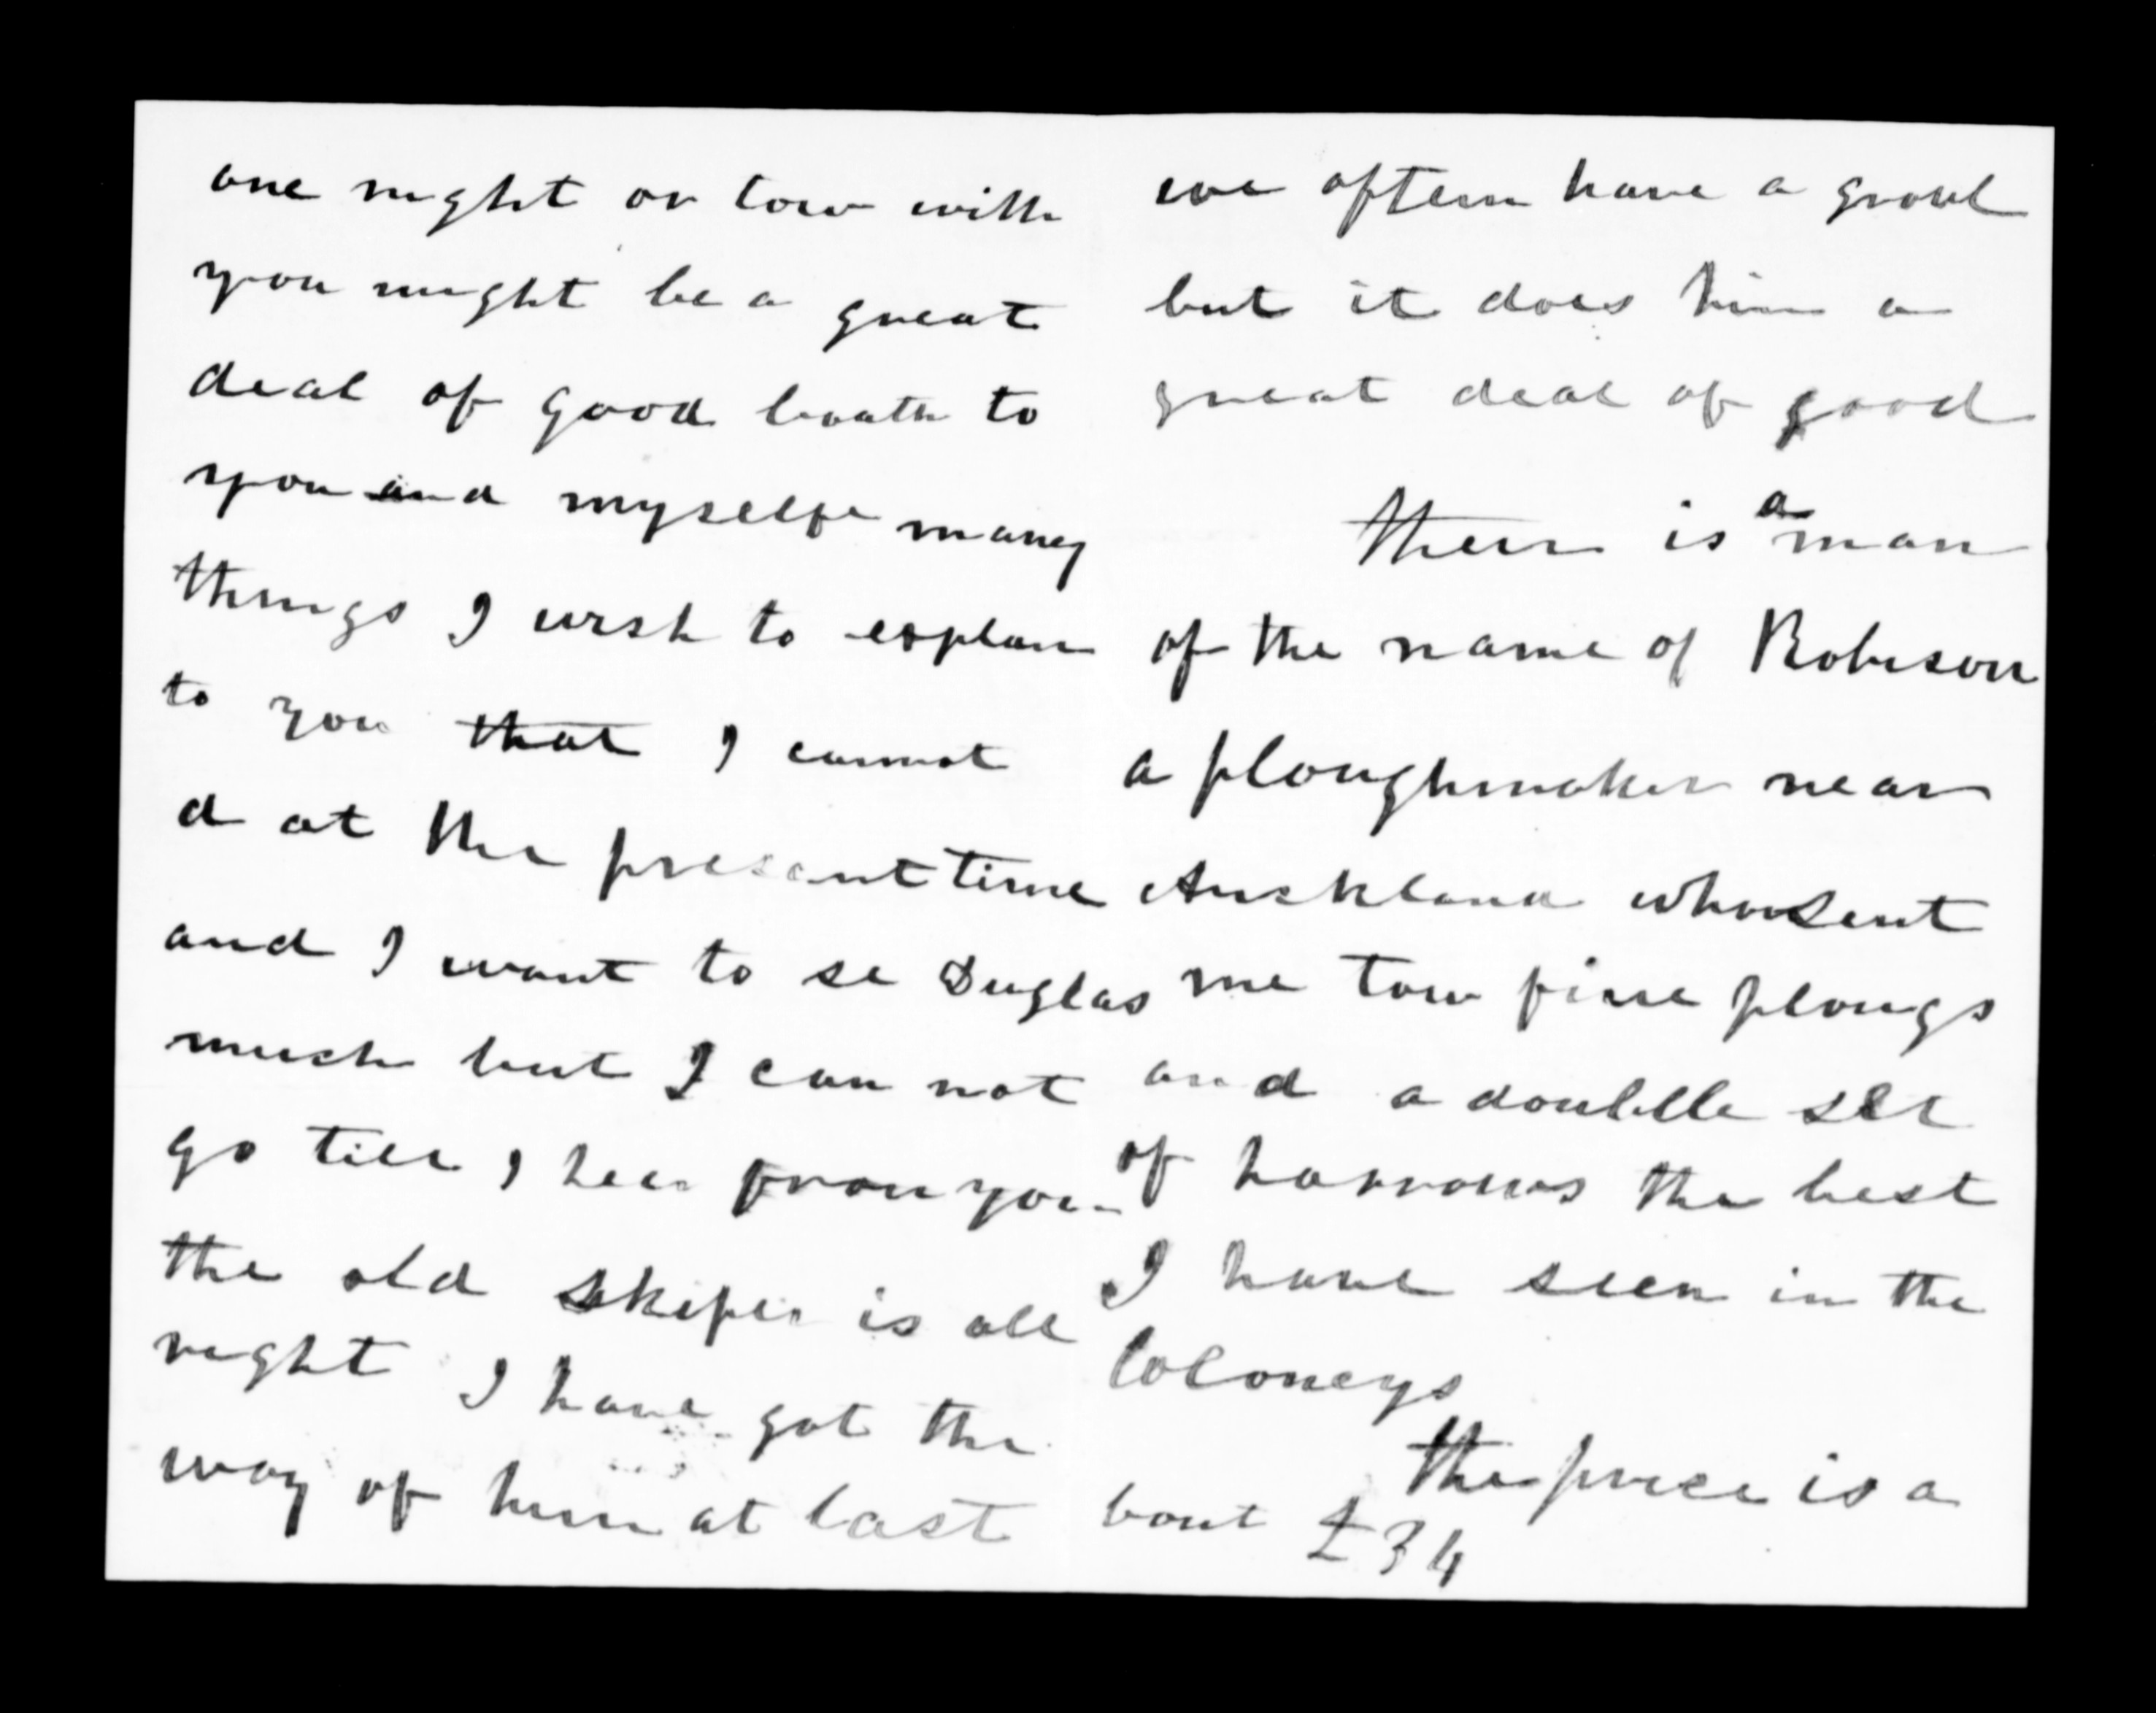 one night or tow with
you might be a great
deal of good boath to
you and myselfe many
things I wish to explan
to you that I cannot
d at the present time
and I want to se Duglas
much but I can not
go till I hear from you
the old skiper is all
right I have got the
way of him at last
we oftem have a growl
but it does him a
great deal of good
Their is a man
of the name of Robison
a ploughmaker near
Auckland who sent
me tow fine plougs
and a doubble set
of harrows the best
I have seen in the
Coloneys
The price is a
bout £34